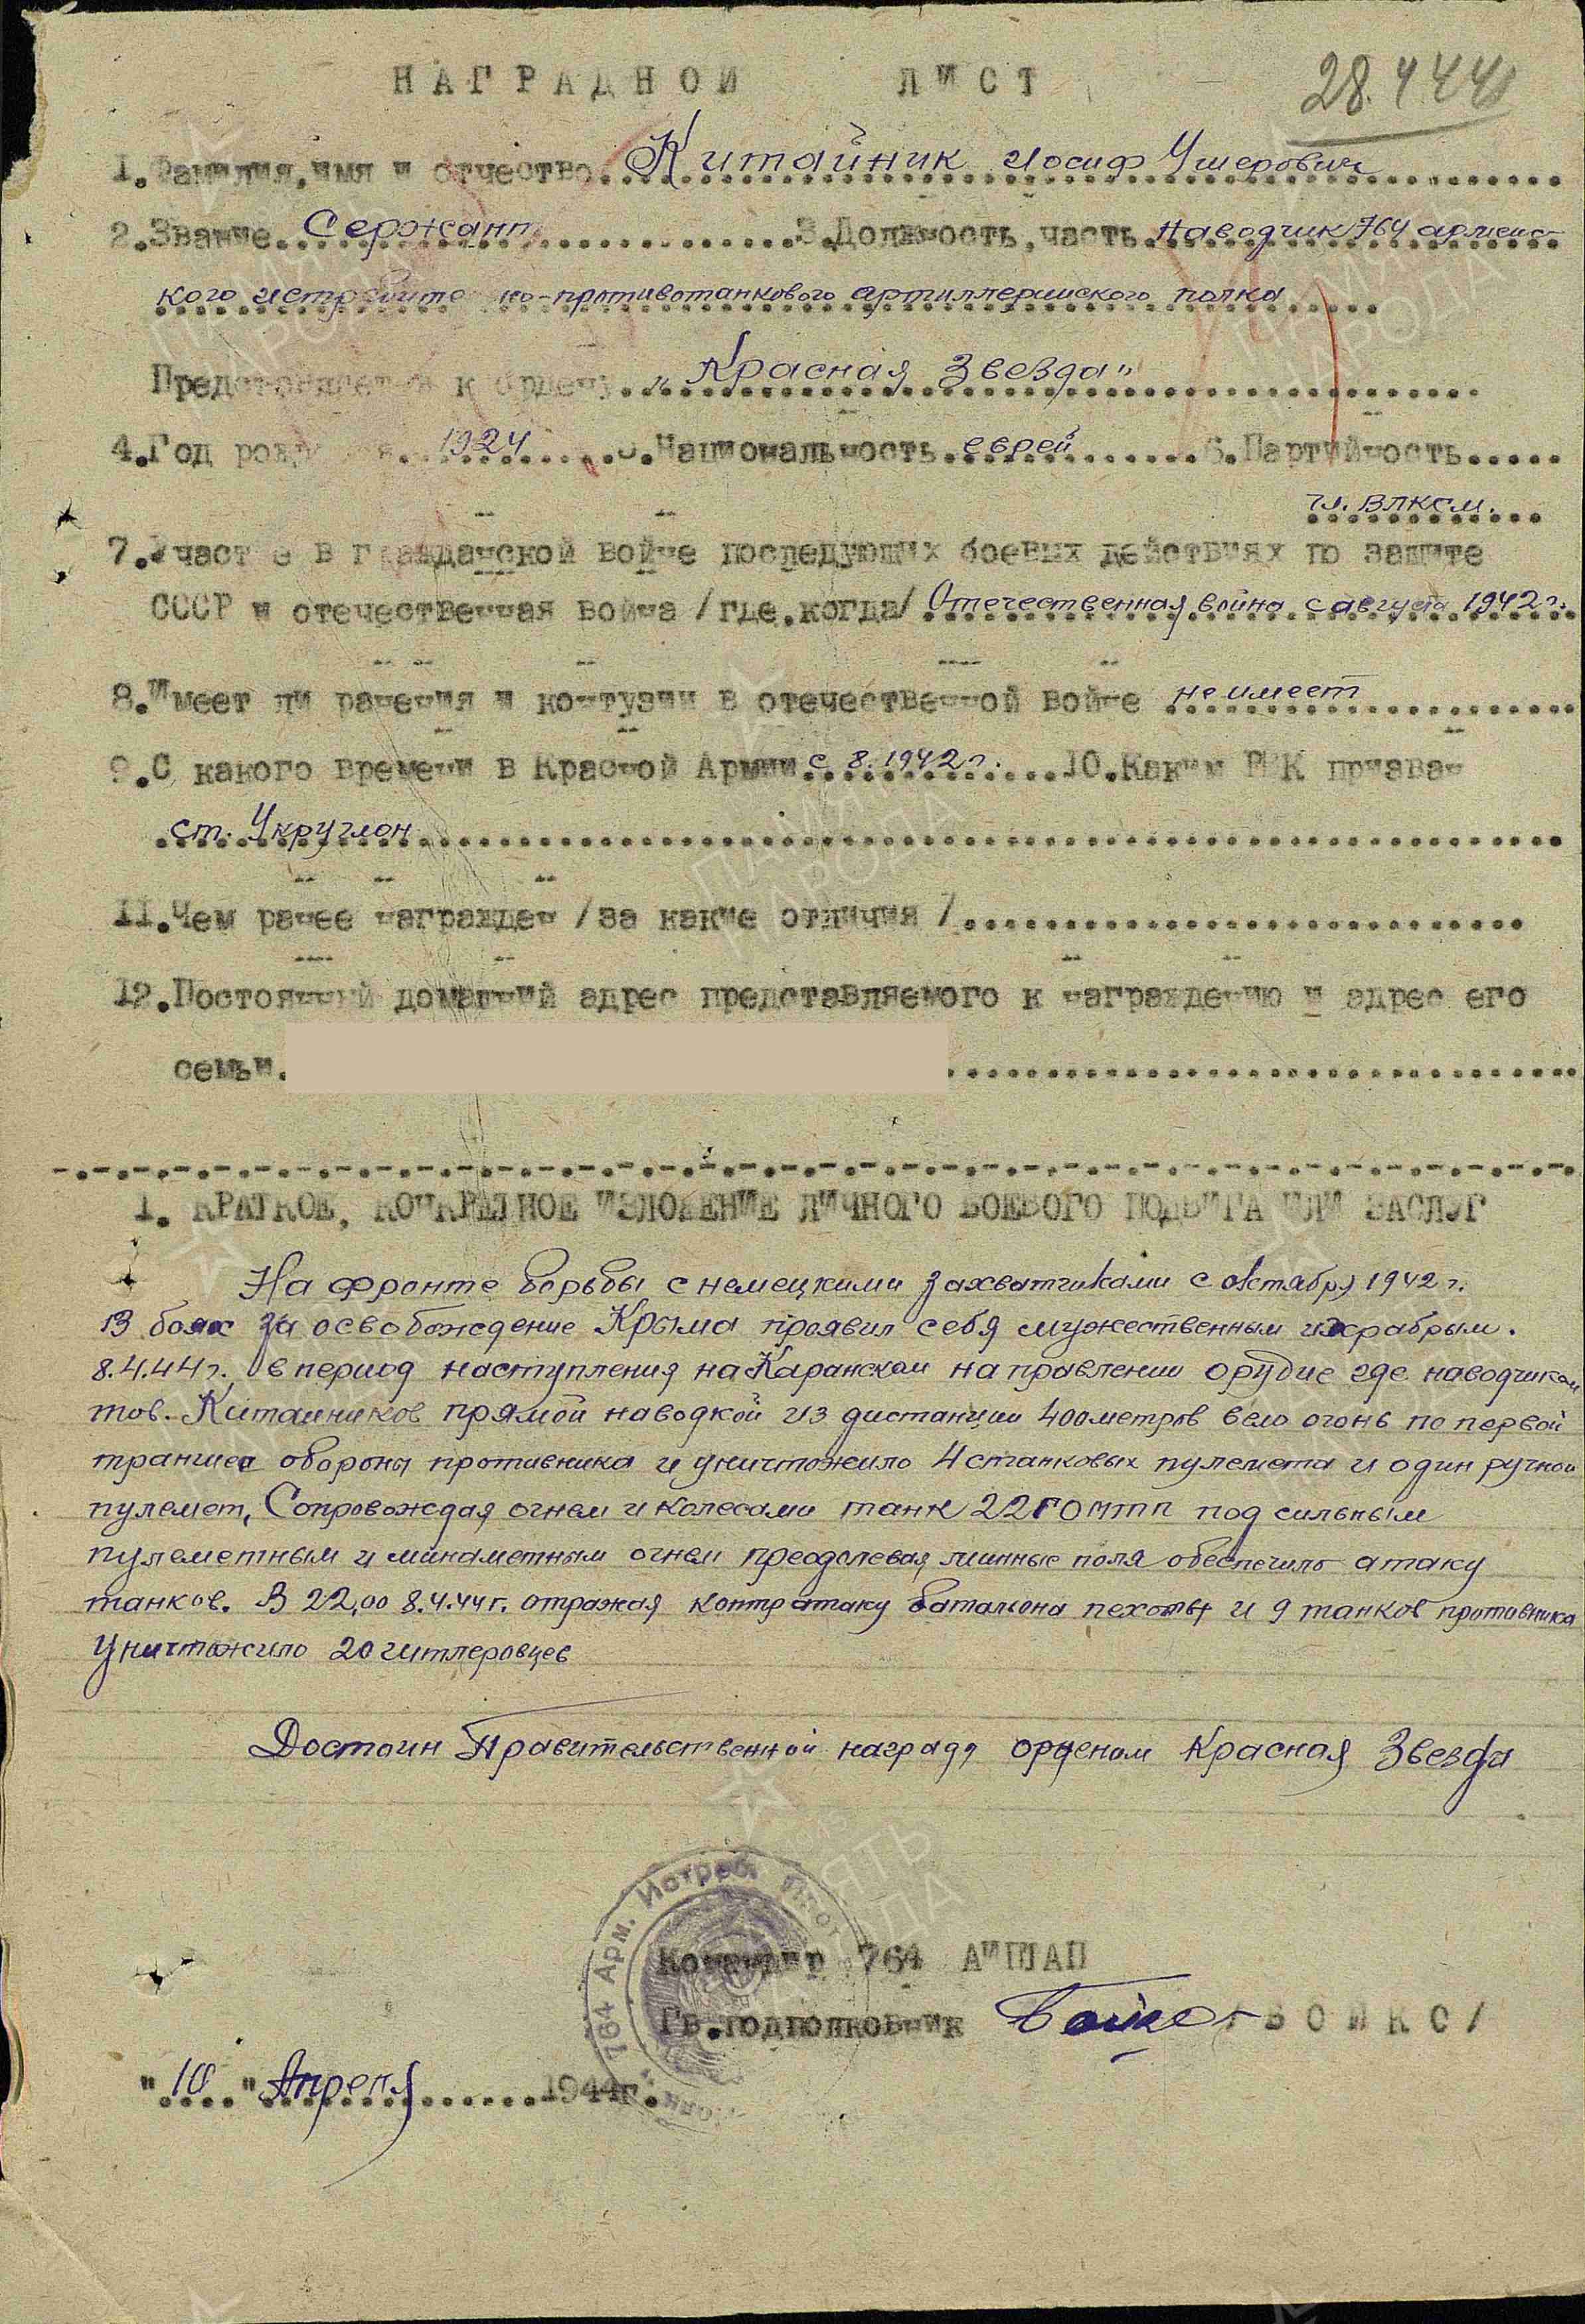 НАГРАДНОЙ ЛИСТ
28.4.44
1.Фамилия,имя и отчество. Китайник Иосиф Ушерович
2.Звание. Сержант 3.Должность,часть наводчик 764 армейс-
кого истребительно-противотанкового артиллерийского полка
Представляется к ордену. „Красная Звезда"
4.Год рождения. 1924 5.Национальность. еврей 6.Партийность.....
чл. ВЛКСМ.
7.Участие в гражданской войне последующих боевых действиях по защите
СССР и отечественная война /где.когда/ Отечественная война с августа 1942 г.
8.Имеет ли ранения и контузии в отечественной войне не имеет
9.С какого времени в Красной Армии. с 8.1942 г. 10.Каким РВК призван
ст. Укруглон
11.Чем ранее награжден /за какие отличия /
12.Постоянный домашний адрес представляемого к награждению и адрес его
семьи.
1. КРАТКОЕ, КОНКРЕТНОЕ ИЗЛОЖЕНИЕ ЛИЧНОГО БОЕВОГО ПОДВИГА ИЛИ ЗАСЛУГ
На фронте борьбы с немецкими захватчиками с октября 1942 г.
В боях за освобождение Крыма проявил себя мужественным и храбрым.
8.4.44 г. в период наступления на Каранском направлении орудие где наводчиком
тов. Китайников прямой наводкой из дистанции 400 метров вело огонь по первой
траншее обороны противника и уничтожило 4 станковых пулемета и один ручной
пулемет, Сопровождая огнем и колесами танк 22 ГОМТП под сильным
пулеметным и минометным огнем преодолевая минные поля обеспечило атаку
танков. В 22,00 8.4.44 г. отражая контратаку батальона пехоты и 9 танков противника
уничтожило 20 гитлеровцев
Достоин Правительственной награды орденом Красная Звезда
764 Арм. Истреб. Прот
Командир 764 АИПТАП
Гв.подполковник /БОЙКО/
"10" Апреля 1944г.